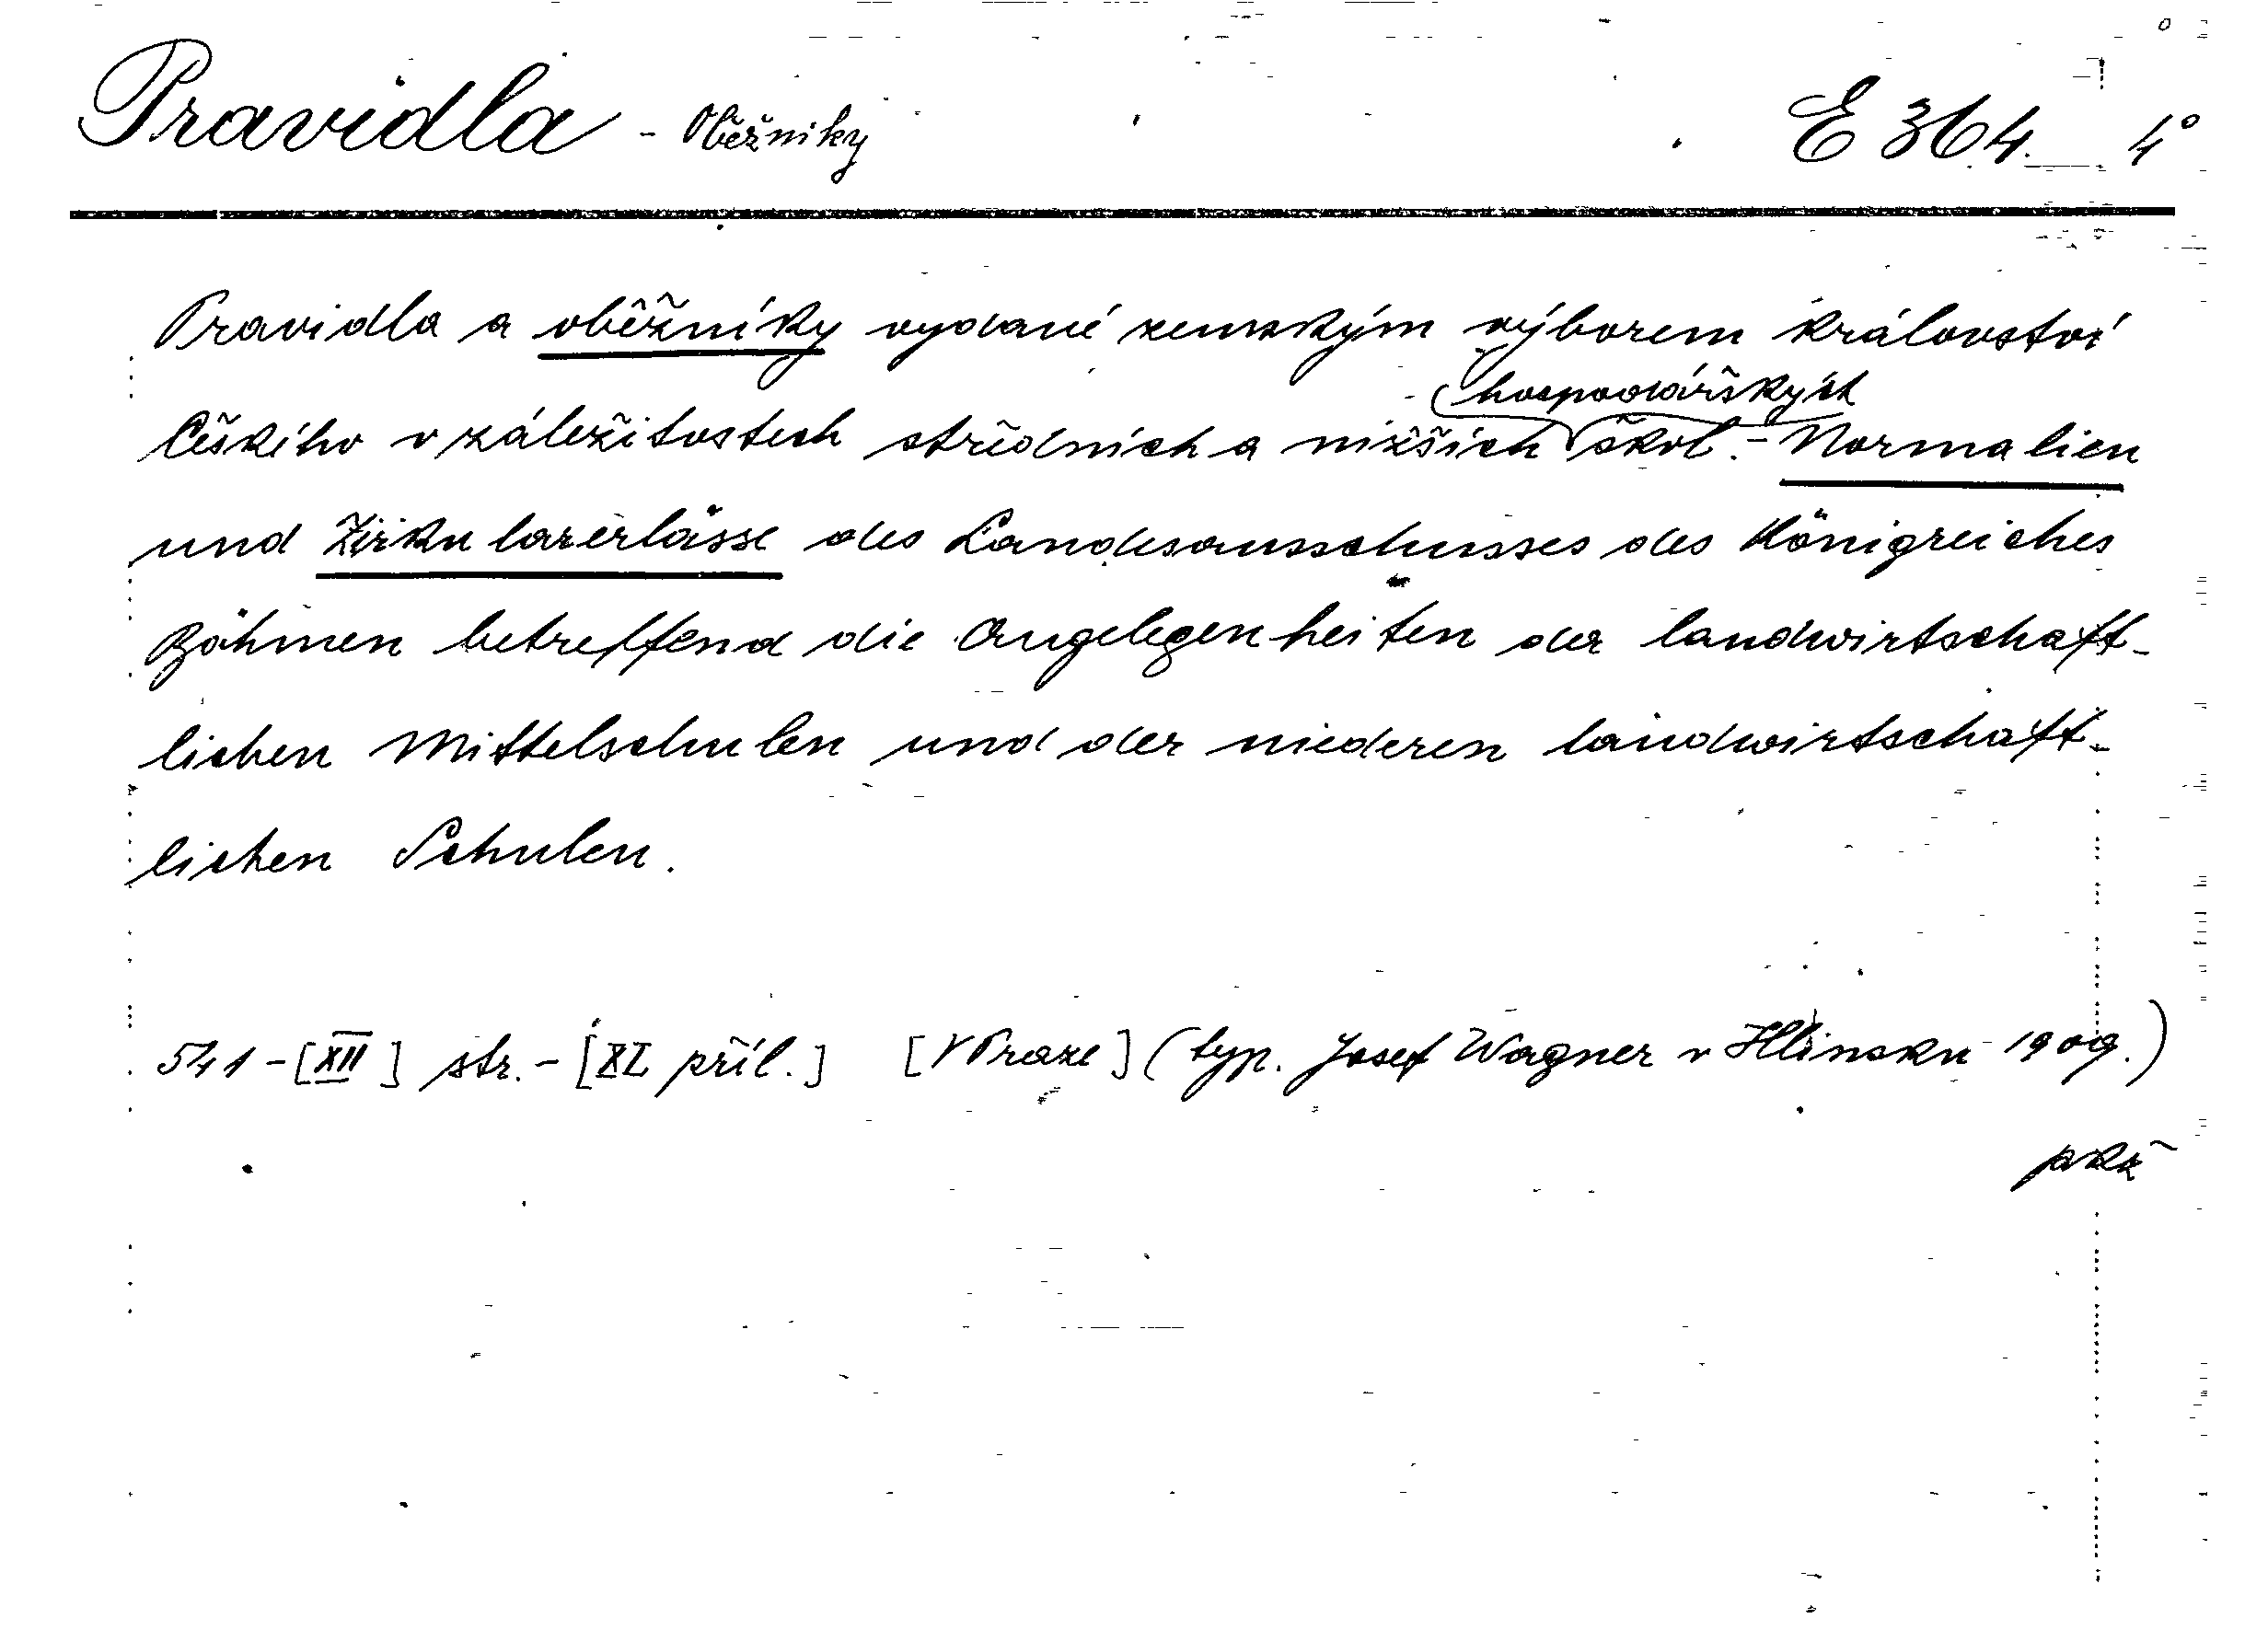 Pravidla - Oběžníky E 364. 4°
Pravidla a oběžníky vydané zemským výborem království
Českého v záležitostech středních a nižších hospodářských škol. - Normalien
und Zirkularerlässe des Landesausschusses des Königreiches
Böhmen betreffend die Angelegenheiten der landwirtschaft-
lichen Mittelschulen und der niederen landwirtschaft-
lichen Schulen.
541 - [XII] str. - [XI příl.] [V Praze] (typ. Josef Wagner v Hlinsku 1909.)